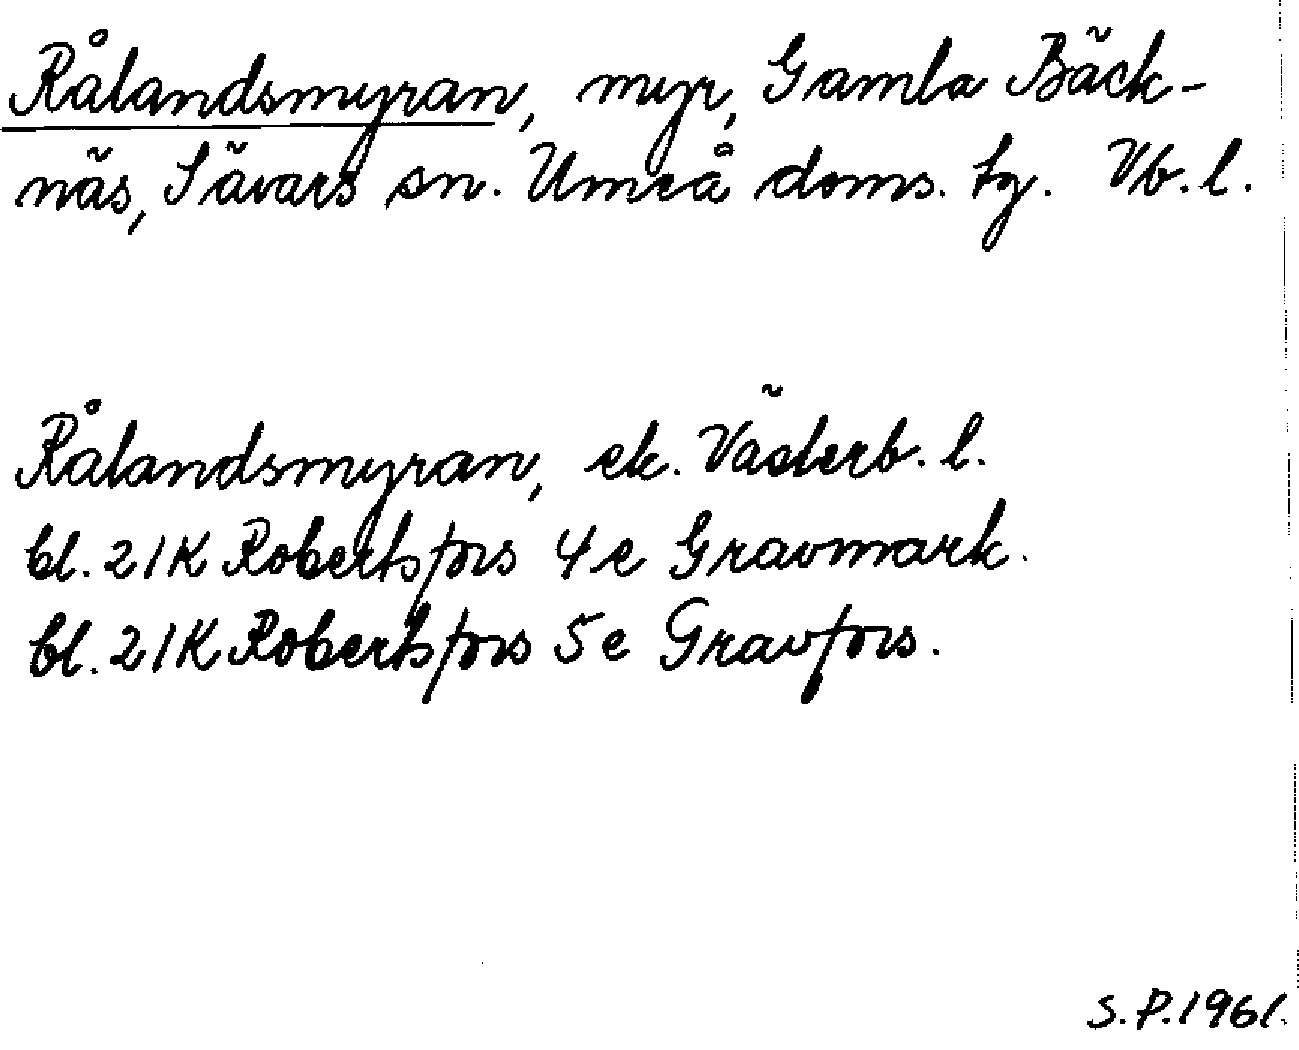 Rålandsmyran, myr, Gamla Bäck-
näs, Sävars sn. Umeå doms. tg. Vb. l.
Rålandsmyran, ek. Västerb. l.
bl. 21K Robertsfors 4e Gravmark.
bl. 21K Robertsfors 5e Gravfors.
S.P.1961.